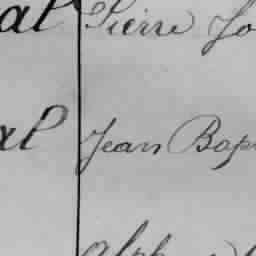 al Pierre Jo
al Jean Bap
Alph